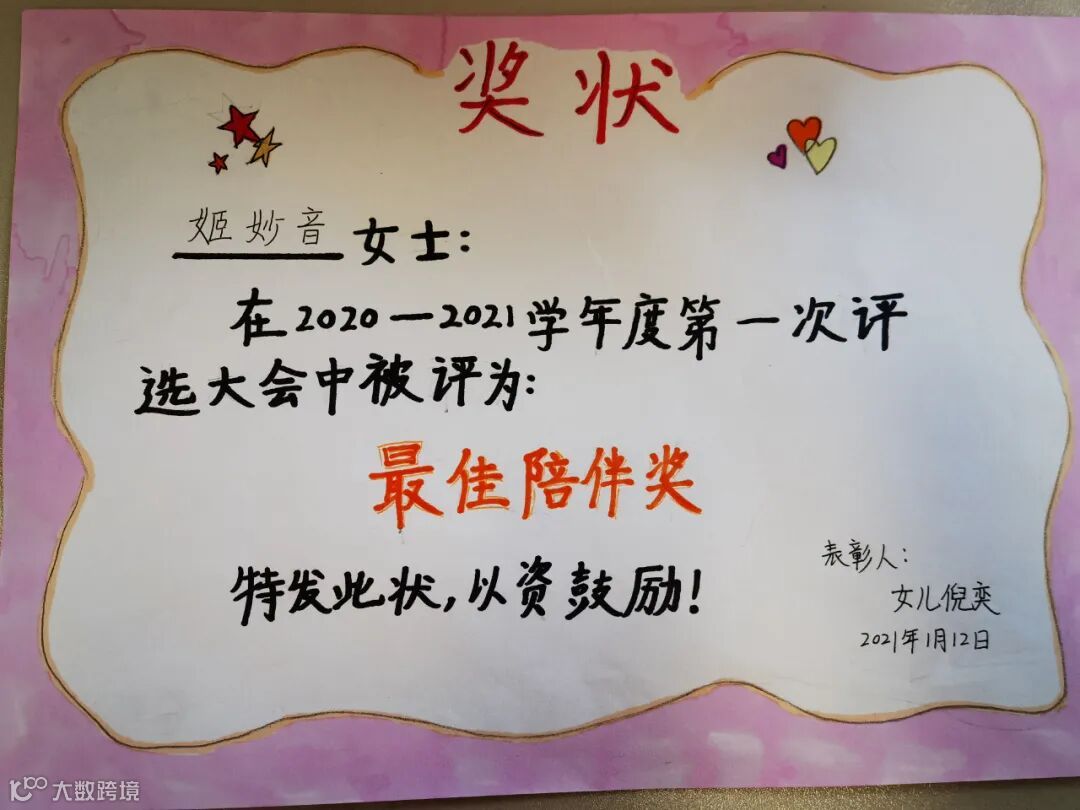 奖状
姬妙音女士:
在2020—2021学年度第一次评
选大会中被评为:
最佳陪伴奖
特发此状,以资鼓励!
表彰人:
女儿倪奕
2021年1月12日
大数跨境